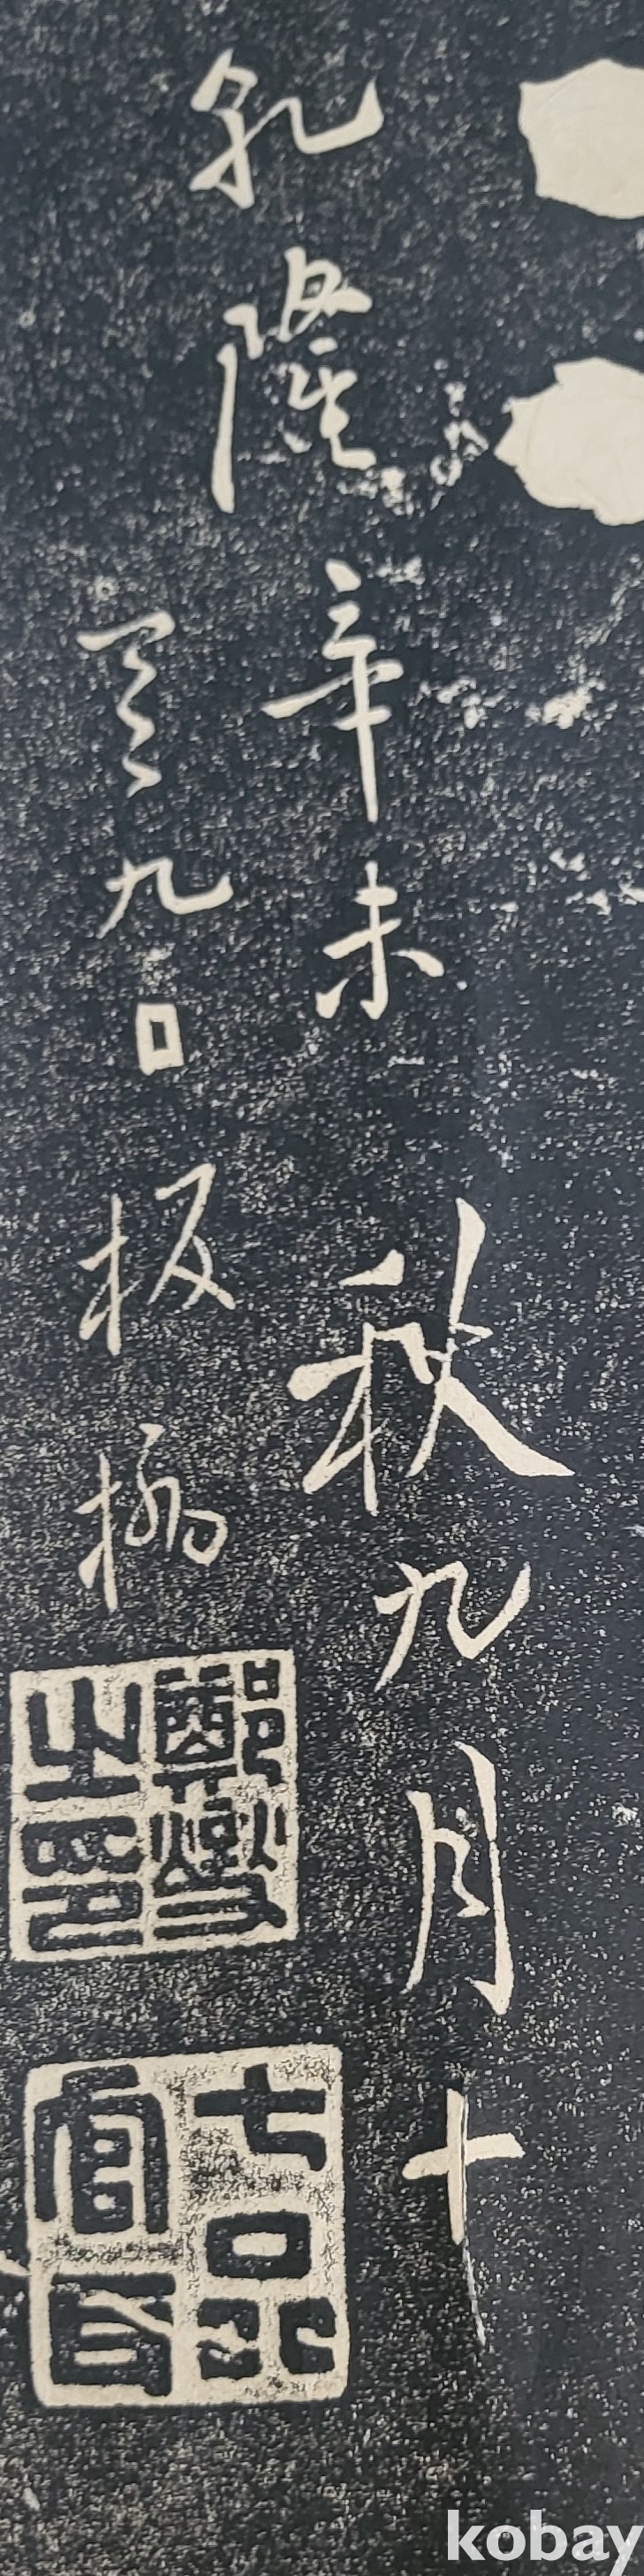 乾隆辛未秋九月十
有九日板橋
鄭燮之印
七品官耳
kobay